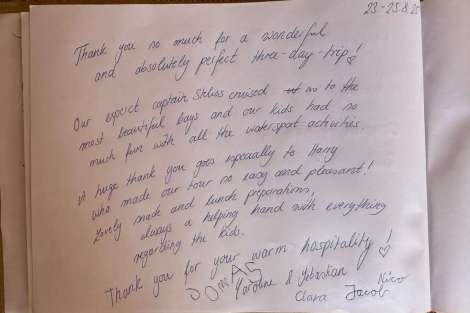 23-25.8.25
Thank you so much for a wonderful
and absolutely perfect three-day-trip!
Our expert captain Stelios cruised us to the
most beautiful bays and our kids had so
much fun with all the watersport activities.
A huge thank you goes especially to Harry
who made our tour so easy and pleasant!
Lovely snack and lunch preparations,
always a helping hand with everything
regarding the kids.
Thank you for your warm hospitality!
JONAS Karoline & Sebastian
Clara Jacob Nico